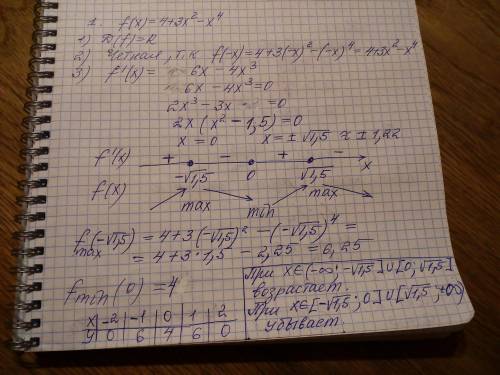 1. f(x) = 4+3x²-x⁴
1) D(f)=R
2) Четная, т.к f(-x) = 4+3(-x)²-(-x)⁴ = 4+3x²-x⁴
3) f'(x) = 6x - 4x³
6x - 4x³ = 0
2x³ - 3x = 0
2x(x² - 1,5) = 0
x = 0 x = ± √1,5 ≈ ± 1,22
f'(x) + - + -
-√1,5 0 √1,5 x
f(x)
max min max
f max (-√1,5) = 4+3(-√1,5)² - (-√1,5)⁴ =
= 4+3·1,5 - 2,25 = 6,25
f min (0) = 4
При x∈(-∞; -√1,5]∪[0; √1,5]
возрастает.
При x∈[-√1,5; 0]∪[√1,5; +∞)
убывает.
x -2 -1 0 1 2
y 0 6 4 6 0